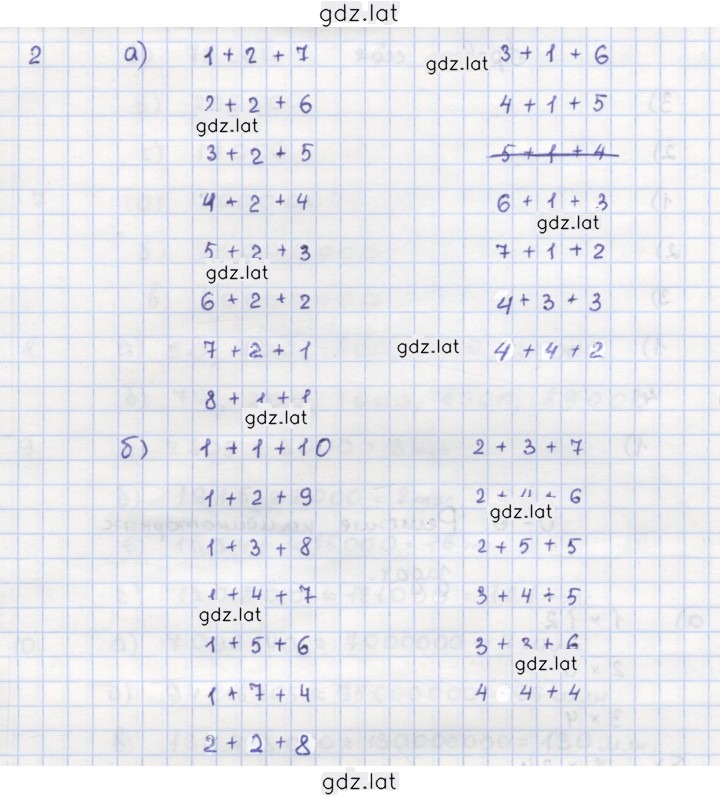 gdz.lat
2 а) 1 + 2 + 7 3 + 1 + 6
gdz.lat
2 + 2 + 6 4 + 1 + 5
gdz.lat
3 + 2 + 5 5 + 1 + 4
4 + 2 + 4 6 + 1 + 3
gdz.lat
5 + 2 + 3 7 + 1 + 2
gdz.lat
6 + 2 + 2 4 + 3 + 3
7 + 2 + 1 4 + 4 + 2
gdz.lat
8 + 1 + 1
gdz.lat
б) 1 + 1 + 10 2 + 3 + 7
1 + 2 + 9 2 + 4 + 6
gdz.lat
1 + 3 + 8 2 + 5 + 5
1 + 4 + 7 3 + 4 + 5
gdz.lat
1 + 5 + 6 3 + 3 + 6
gdz.lat
1 + 7 + 4 4 4 + 4
2 + 2 + 8
gdz.lat